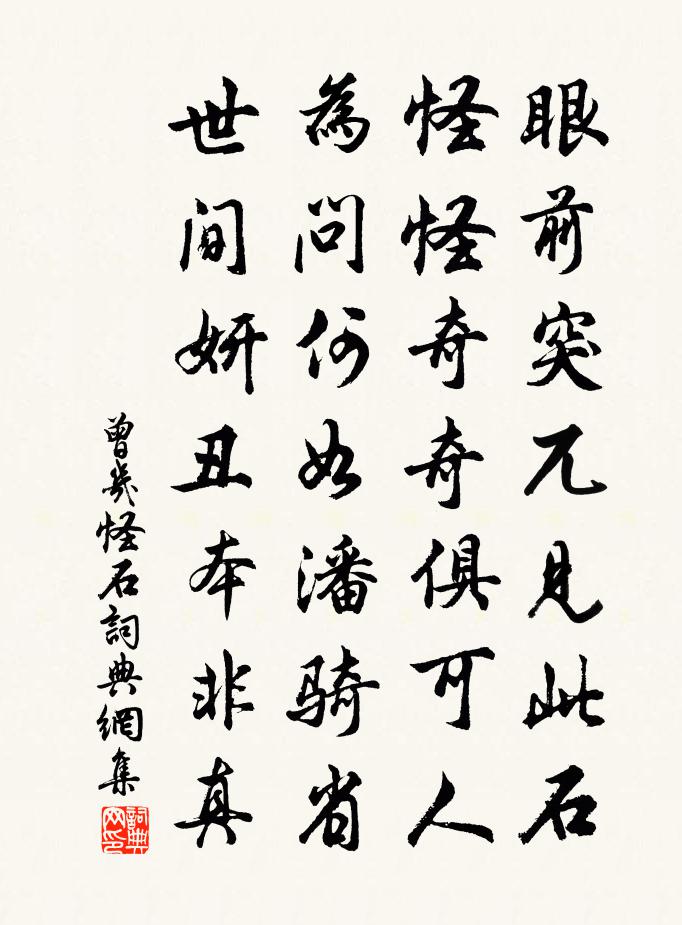 眼前突兀見此石
怪怪奇奇俱可人
為問何如潘騎省
世间妍丑本非真
曾幾怪石詞典網集
詞典网印